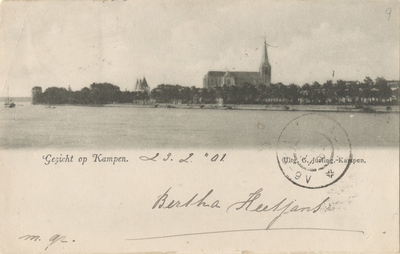 Gezicht op Kampen. 23.2 "01 Uitg. Kampen.
Bertha Heetjans
m. gr.